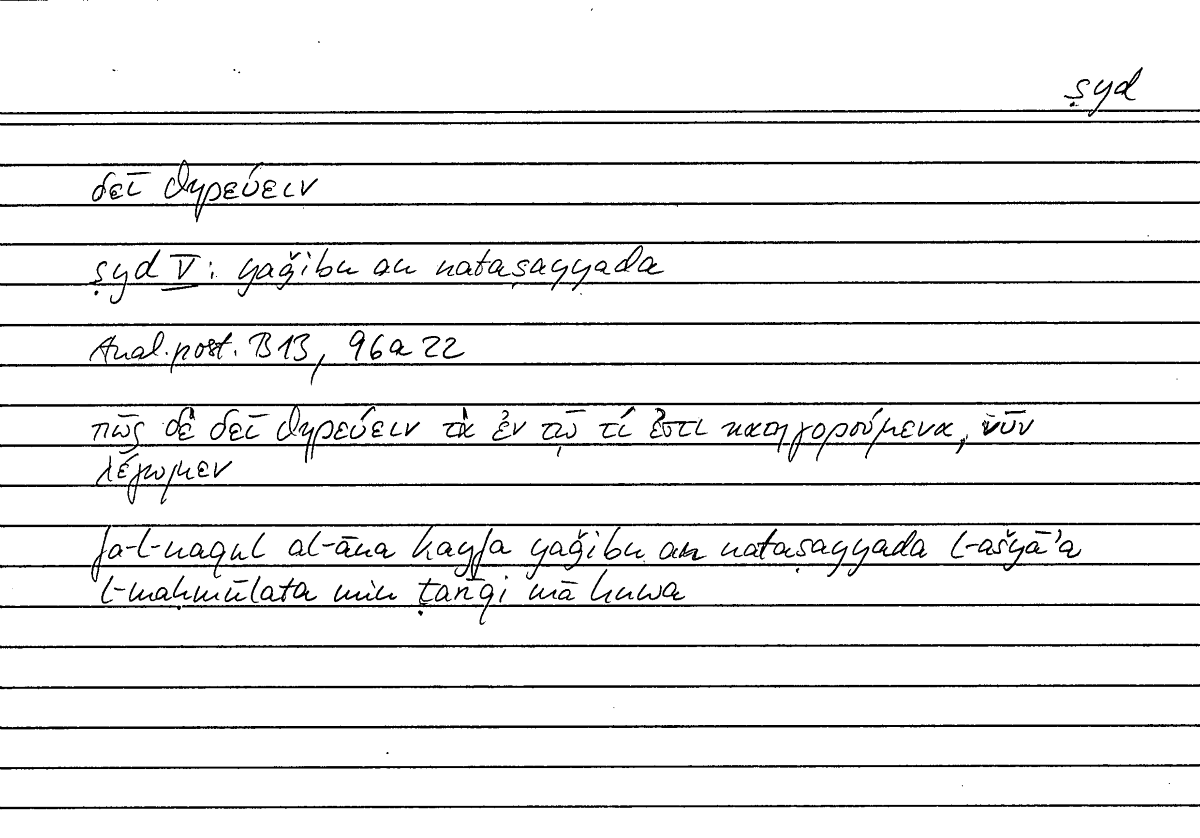 ṣyd
δεῖ θηρεύειν
ṣyd V: yaǧibu an nataṣayyada
Anal. post. B 13, 96a 22
πῶς δὲ δεῖ θηρεύειν τὰ ἐν τῷ τί ἐστι κατηγορούμενα, νῦν
λέγωμεν
fa-l-naqul al-āna kayfa yaǧibu an nataṣayyada l-ašyāʾa
l-maḥmūlata min ṭarīqi mā huwa